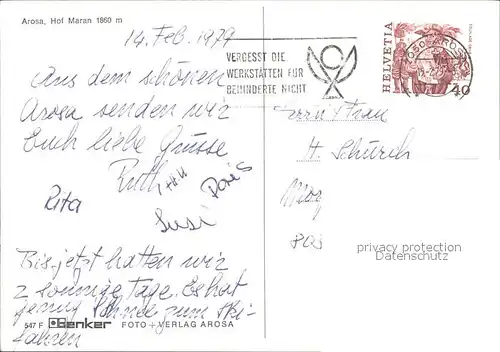 Arosa, Hof Maran 1860 m
14. Feb. 1979
Aus dem schönen
Arosa senden wir
Euch liebe Grüsse
Ruth
Doris
Rita
Susi
Bis jetzt hatten wir
2 sonnige Tage. Es hat
genug Schnee zum Ski-
fahren
547 F Benker FOTO + VERLAG AROSA
VERGESST DIE
WERKSTÄTTEN FÜR
BEHINDERTE NICHT
HELVETIA
40
7050 AROSA
Herrn & Frau
H. Schürch
803
privacy protection
Datenschutz